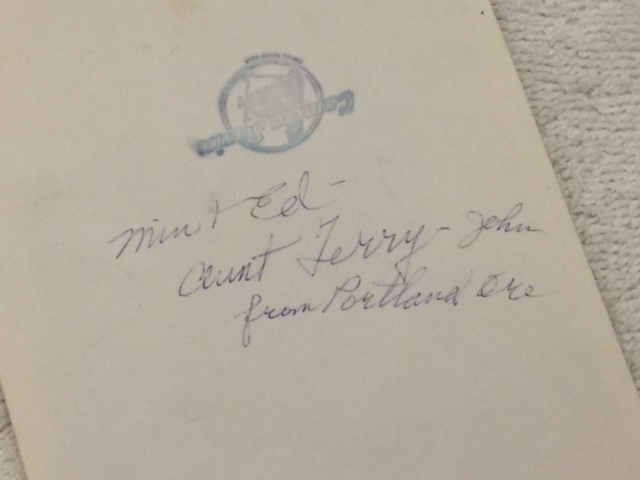 Min + Ed -
Aunt Terry - John
from Portland Ore